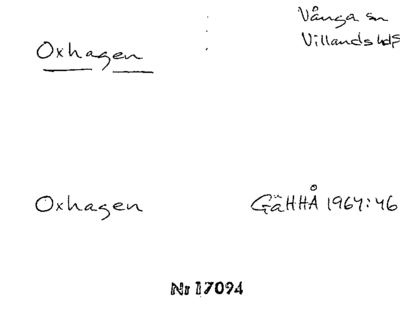 Vånga sn
Oxhagen
Villands hds
Oxhagen
GäHHÅ 1964:46
Nr 17094